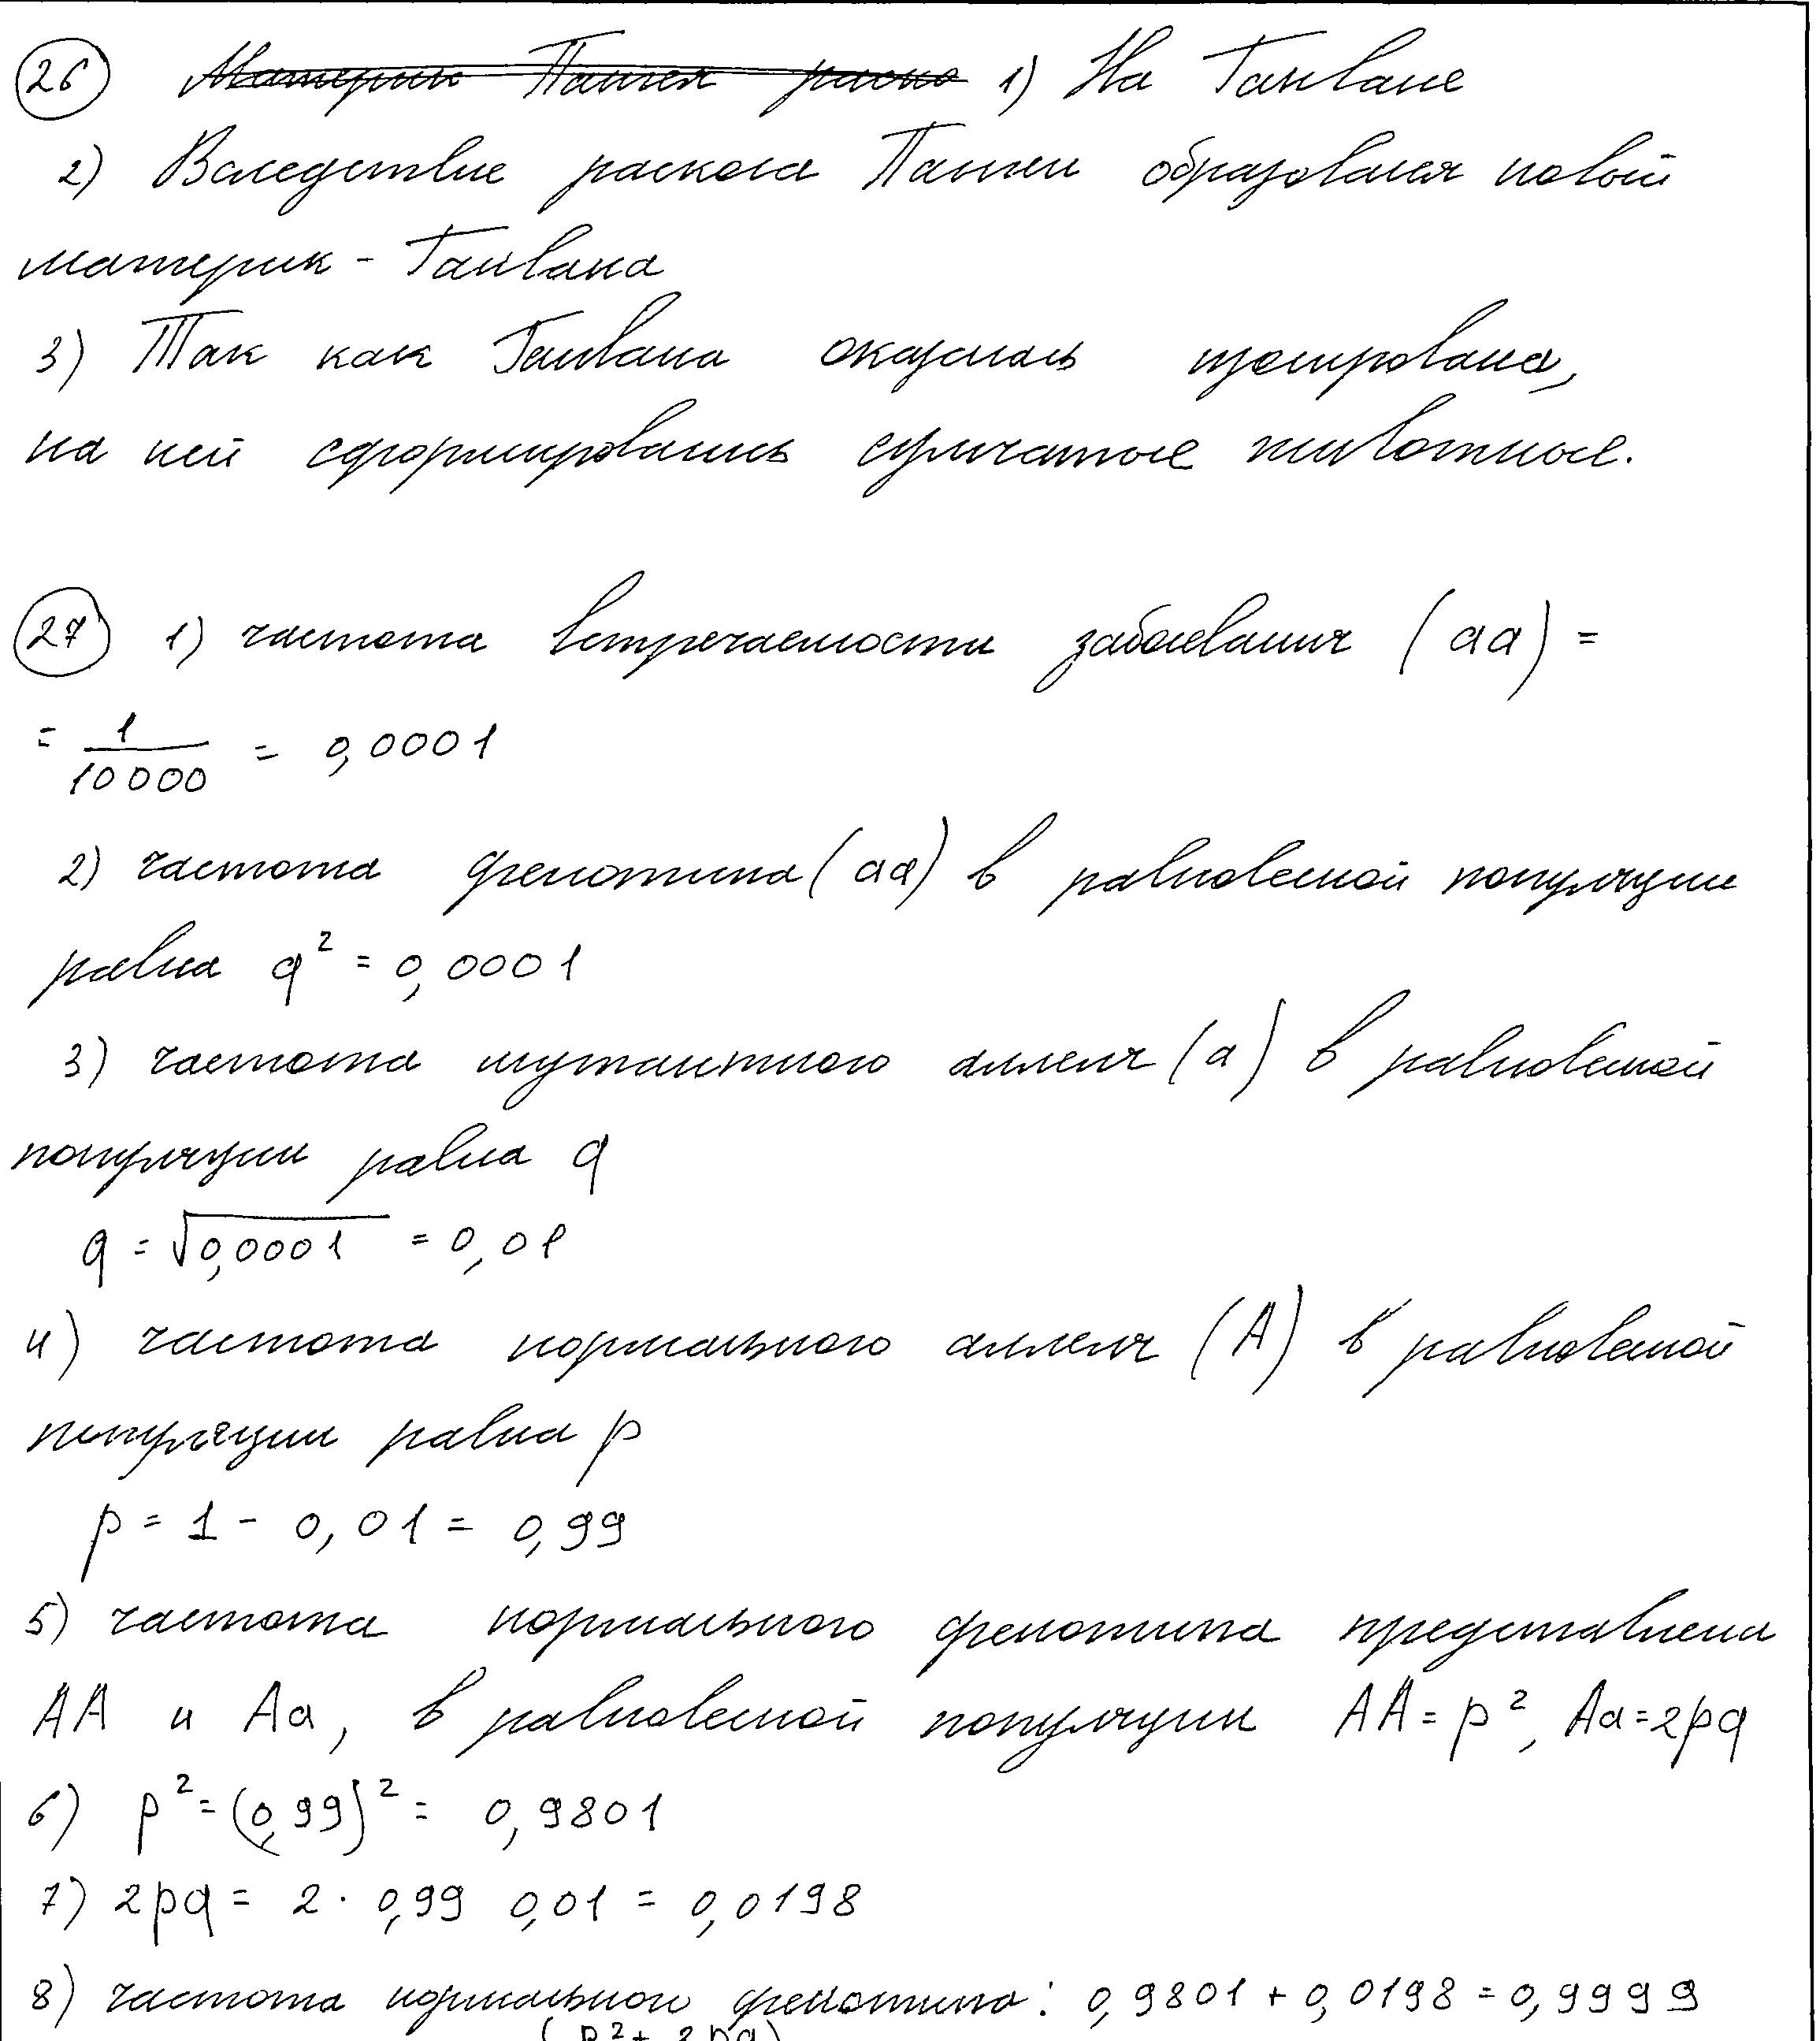 26 Материк Пангея раско 1) На Гаиване
2) Вследствие раскола Пангеи образовался новый
материк - Гаивана
3) Так как Гаивана оказалась изолирована,
на ней сформировались сумчатые животные.
27 1) частота встречаемости заболевания (aa) =
= 1/10000 = 0,0001
2) частота фенотипа (aa) в равновесной популяции
равна q² = 0,0001
3) частота мутантного аллеля (a) в равновесной
популяции равна q
q = √0,0001 = 0,01
4) частота нормального аллеля (A) в равновесной
популяции равна p
p = 1 - 0,01 = 0,99
5) частота нормального фенотипа представлена
AA и Aa, в равновесной популяции AA = p², Aa = 2pq
6) p² = (0,99)² = 0,9801
7) 2pq = 2 · 0,99 0,01 = 0,0198
8) частота нормального фенотипа: 0,9801 + 0,0198 = 0,9999
(p² + 2pq)